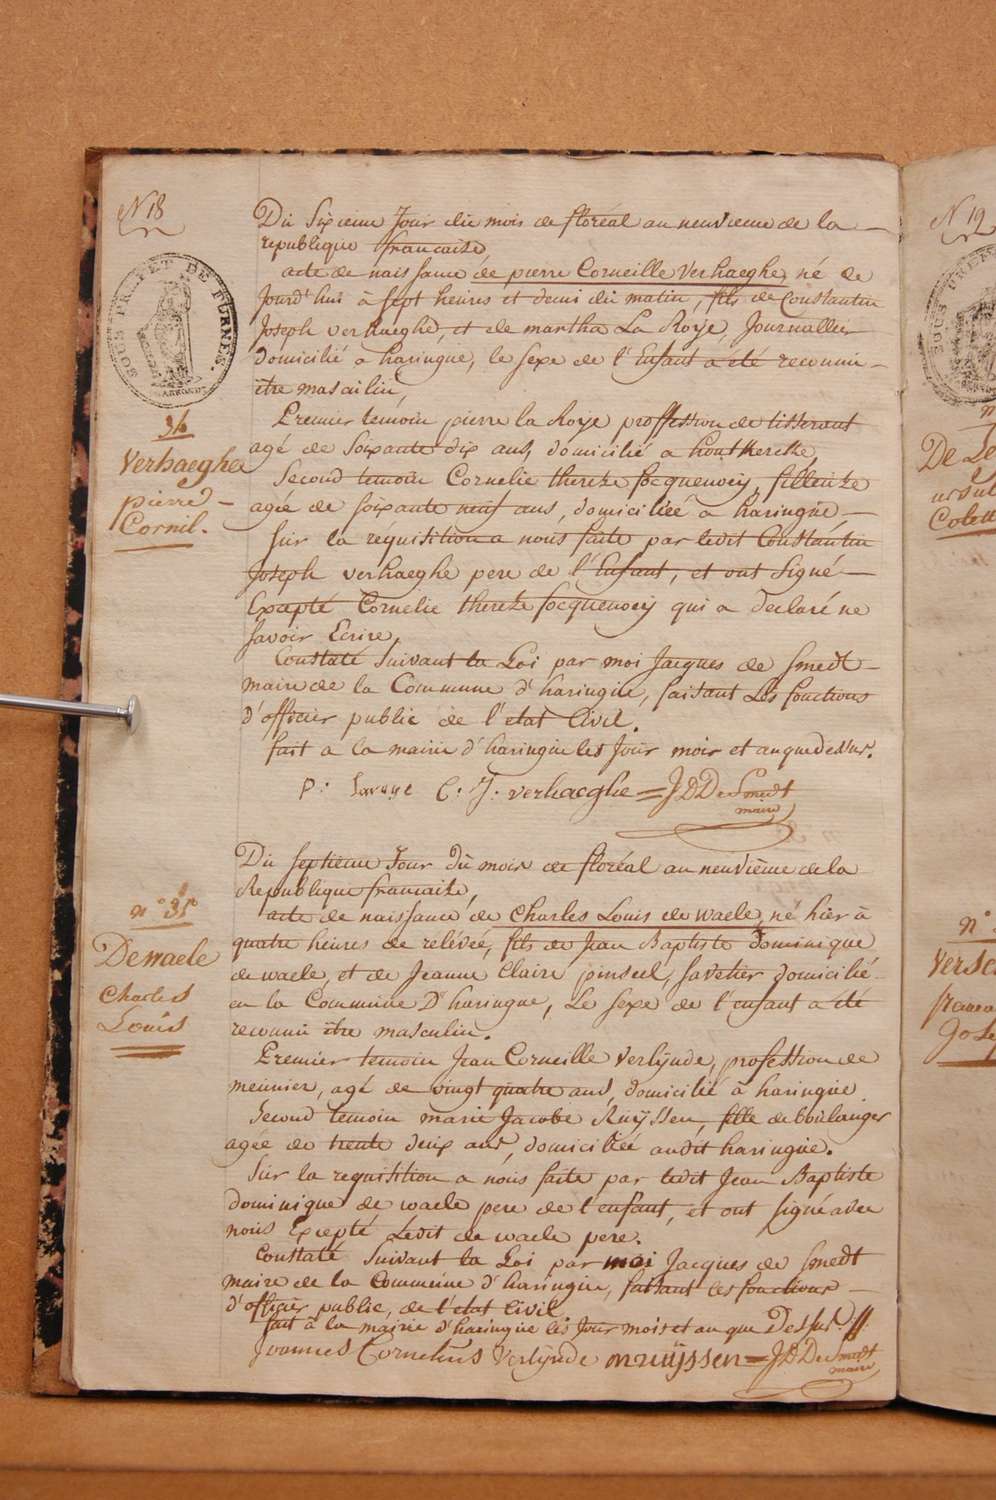 N 18
SOUS PREFET DE FURNES.
ARROND
34
Verhaeghe
pierre
Cornil.
Du Sixieme Jour du mois de floréal au neuvieme de la
republique francaise,
acte de naissance de pierre Corneille Verhaeghe, né de
Jourd'hui à sept heures et demi du matin, fils de Constantin
Joseph verhaeghe, et de martha La Roye, Journallier
domicilié a haringue, le sexe de l'Enfant a été reconnu
être masculin,
Premier temoin pierre la Roye proffession de tisserant
agé de Soixante dix ans, domicilié a houtkercke,
Second temoin Cornelie thereze focquenoeij, fileuze
agée de soixante neuf ans, domiciliée a haringue,
Sur la réquisition a nous faite par ledit Constantin
Joseph verhaeghe pere de l'Enfant, et ont Signé
Excepté Cornelie thereze focquenoeij qui a declaré ne
savoir Ecrire,
Constaté Suivant la Loi par moi Jacques de Smedt
maire de la Commune d'haringue, faisant les fonctions
d'officier public de l'etat Civil.
fait a la mairie d'haringue les Jour mois et an que dessus.
P: Laroye C: J: verhaeghe = J D De Smedt
maire
n° 35
De waele
Charles
Louis
Du septieme Jour du mois de floréal au neuvième de la
Republique francaise,
acte de naissance de Charles Louis de waele, né hier à
quatre heures de rélévée, fils de Jean Baptiste dominique
de waele, et de Jeanne Claire pinseel, savetier domicilié
en la Commune D'haringue, Le sexe de l'enfant a été
reconnu être masculin.
Premier temoin Jean Corneille Verlijnde, profession de
meunier, agé de vingt quatre ans, domicilié à haringue
Second temoin marie Jacobe Ruijssen, fille de boulanger
agée de trente deux ans, domiciliée audit haringue.
Sur la requisition a nous faite par ledit Jean Baptiste
dominique de waele pere de l'enfant, et ont signé avec
nous Excepté Ledit de waele pere.
Constaté Suivant la Loi par moi Jacques de Smedt
maire de la Commune d'haringue, faisant les fonctions
d'officier public, de l'etat Civil
fait à la mairie d'haringue les Jour mois et an que Dessus.
Joannes Cornelius Verlijnde mruijssen = J D De Smedt
maire
N 19
SOUS PREF
n
De Le
ursul
Colett
n°
Versc
Jose